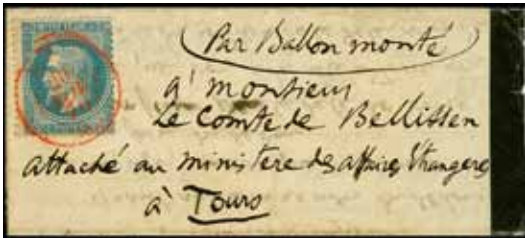 Par Ballon monté
a' monsieur
Le Comte de Bellissen
attaché au ministere des affaires Etrangeres
à Tours